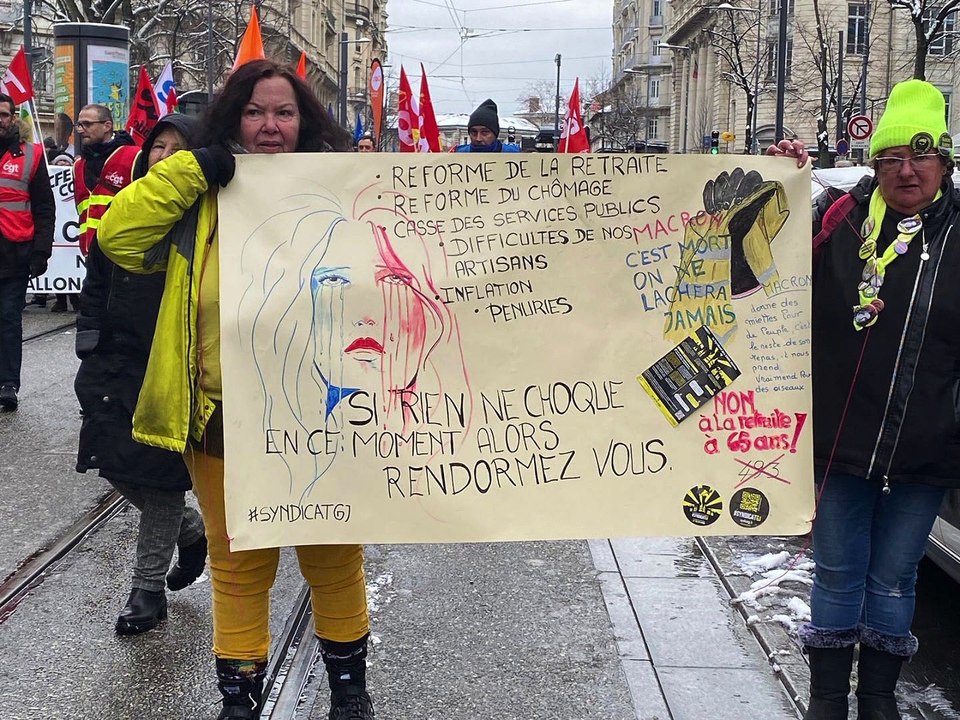 • REFORME DE LA RETRAITE
• REFORME DU CHÔMAGE
• CASSE DES SERVICES PUBLICS
• DIFFICULTES DE NOS
ARTISANS
• INFLATION
• PENURIES
MACRON
C'EST MORT
ON NE
LACHERA
JAMAIS
MACRON
donne des
miettes pour
le Peuple, c'est
le reste de son
repas, il nous
prend
vraiment Pour
des oiseaux
NON
à la retraite
à 65 ans!
49.3
SI RIEN NE CHOQUE
EN CE MOMENT ALORS
RENDORMEZ VOUS.
#SYNDICATGJ
#SYNDICATGJ
cgt
cgt
ALLON